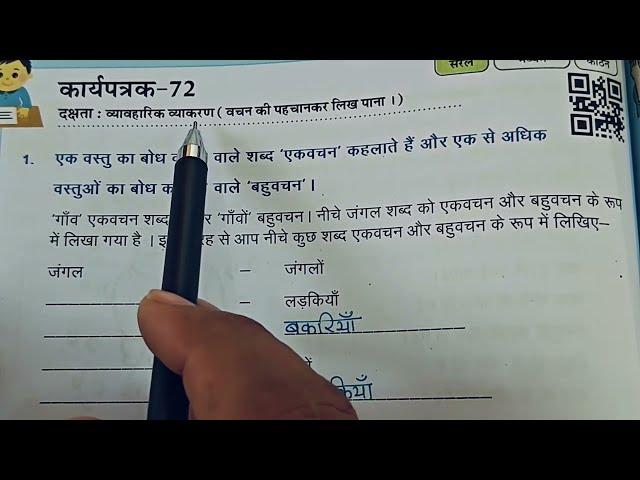 सरल कठिन
कार्यपत्रक-72
दक्षता : व्यावहारिक व्याकरण ( वचन की पहचानकर लिख पाना । )
1. एक वस्तु का बोध वाले शब्द 'एकवचन' कहलाते हैं और एक से अधिक
वस्तुओं का बोध वाले 'बहुवचन' ।
'गाँव' एकवचन शब्द 'गाँवों' बहुवचन। नीचे जंगल शब्द को एकवचन और बहुवचन के रूप
में लिखा गया है । से आप नीचे कुछ शब्द एकवचन और बहुवचन के रूप में लिखिए–
जंगल – जंगलों
– लड़कियाँ
बकरियाँ